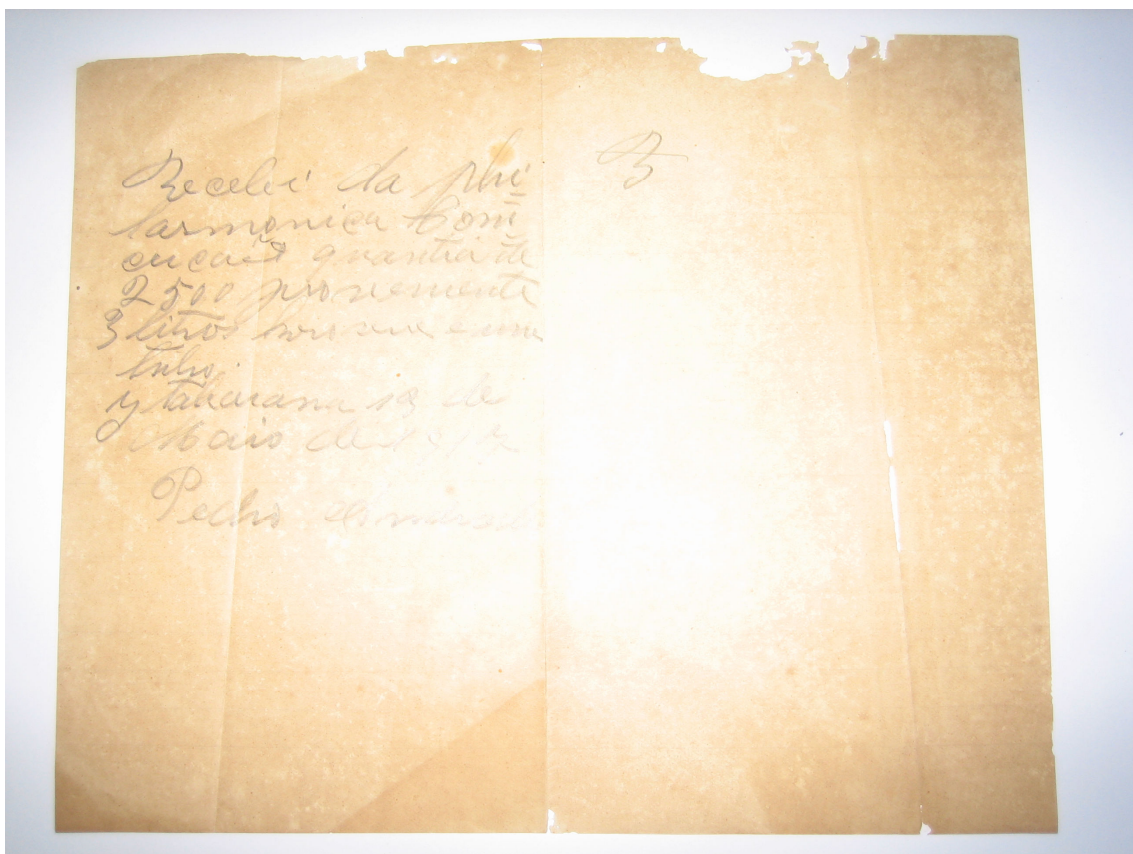 Recebi da phi
larmonica Com
cucaia quantia de
2500 proveniente
3 litros e uma
tubo.
ytabaiana 13 de
Maio de
Pedro